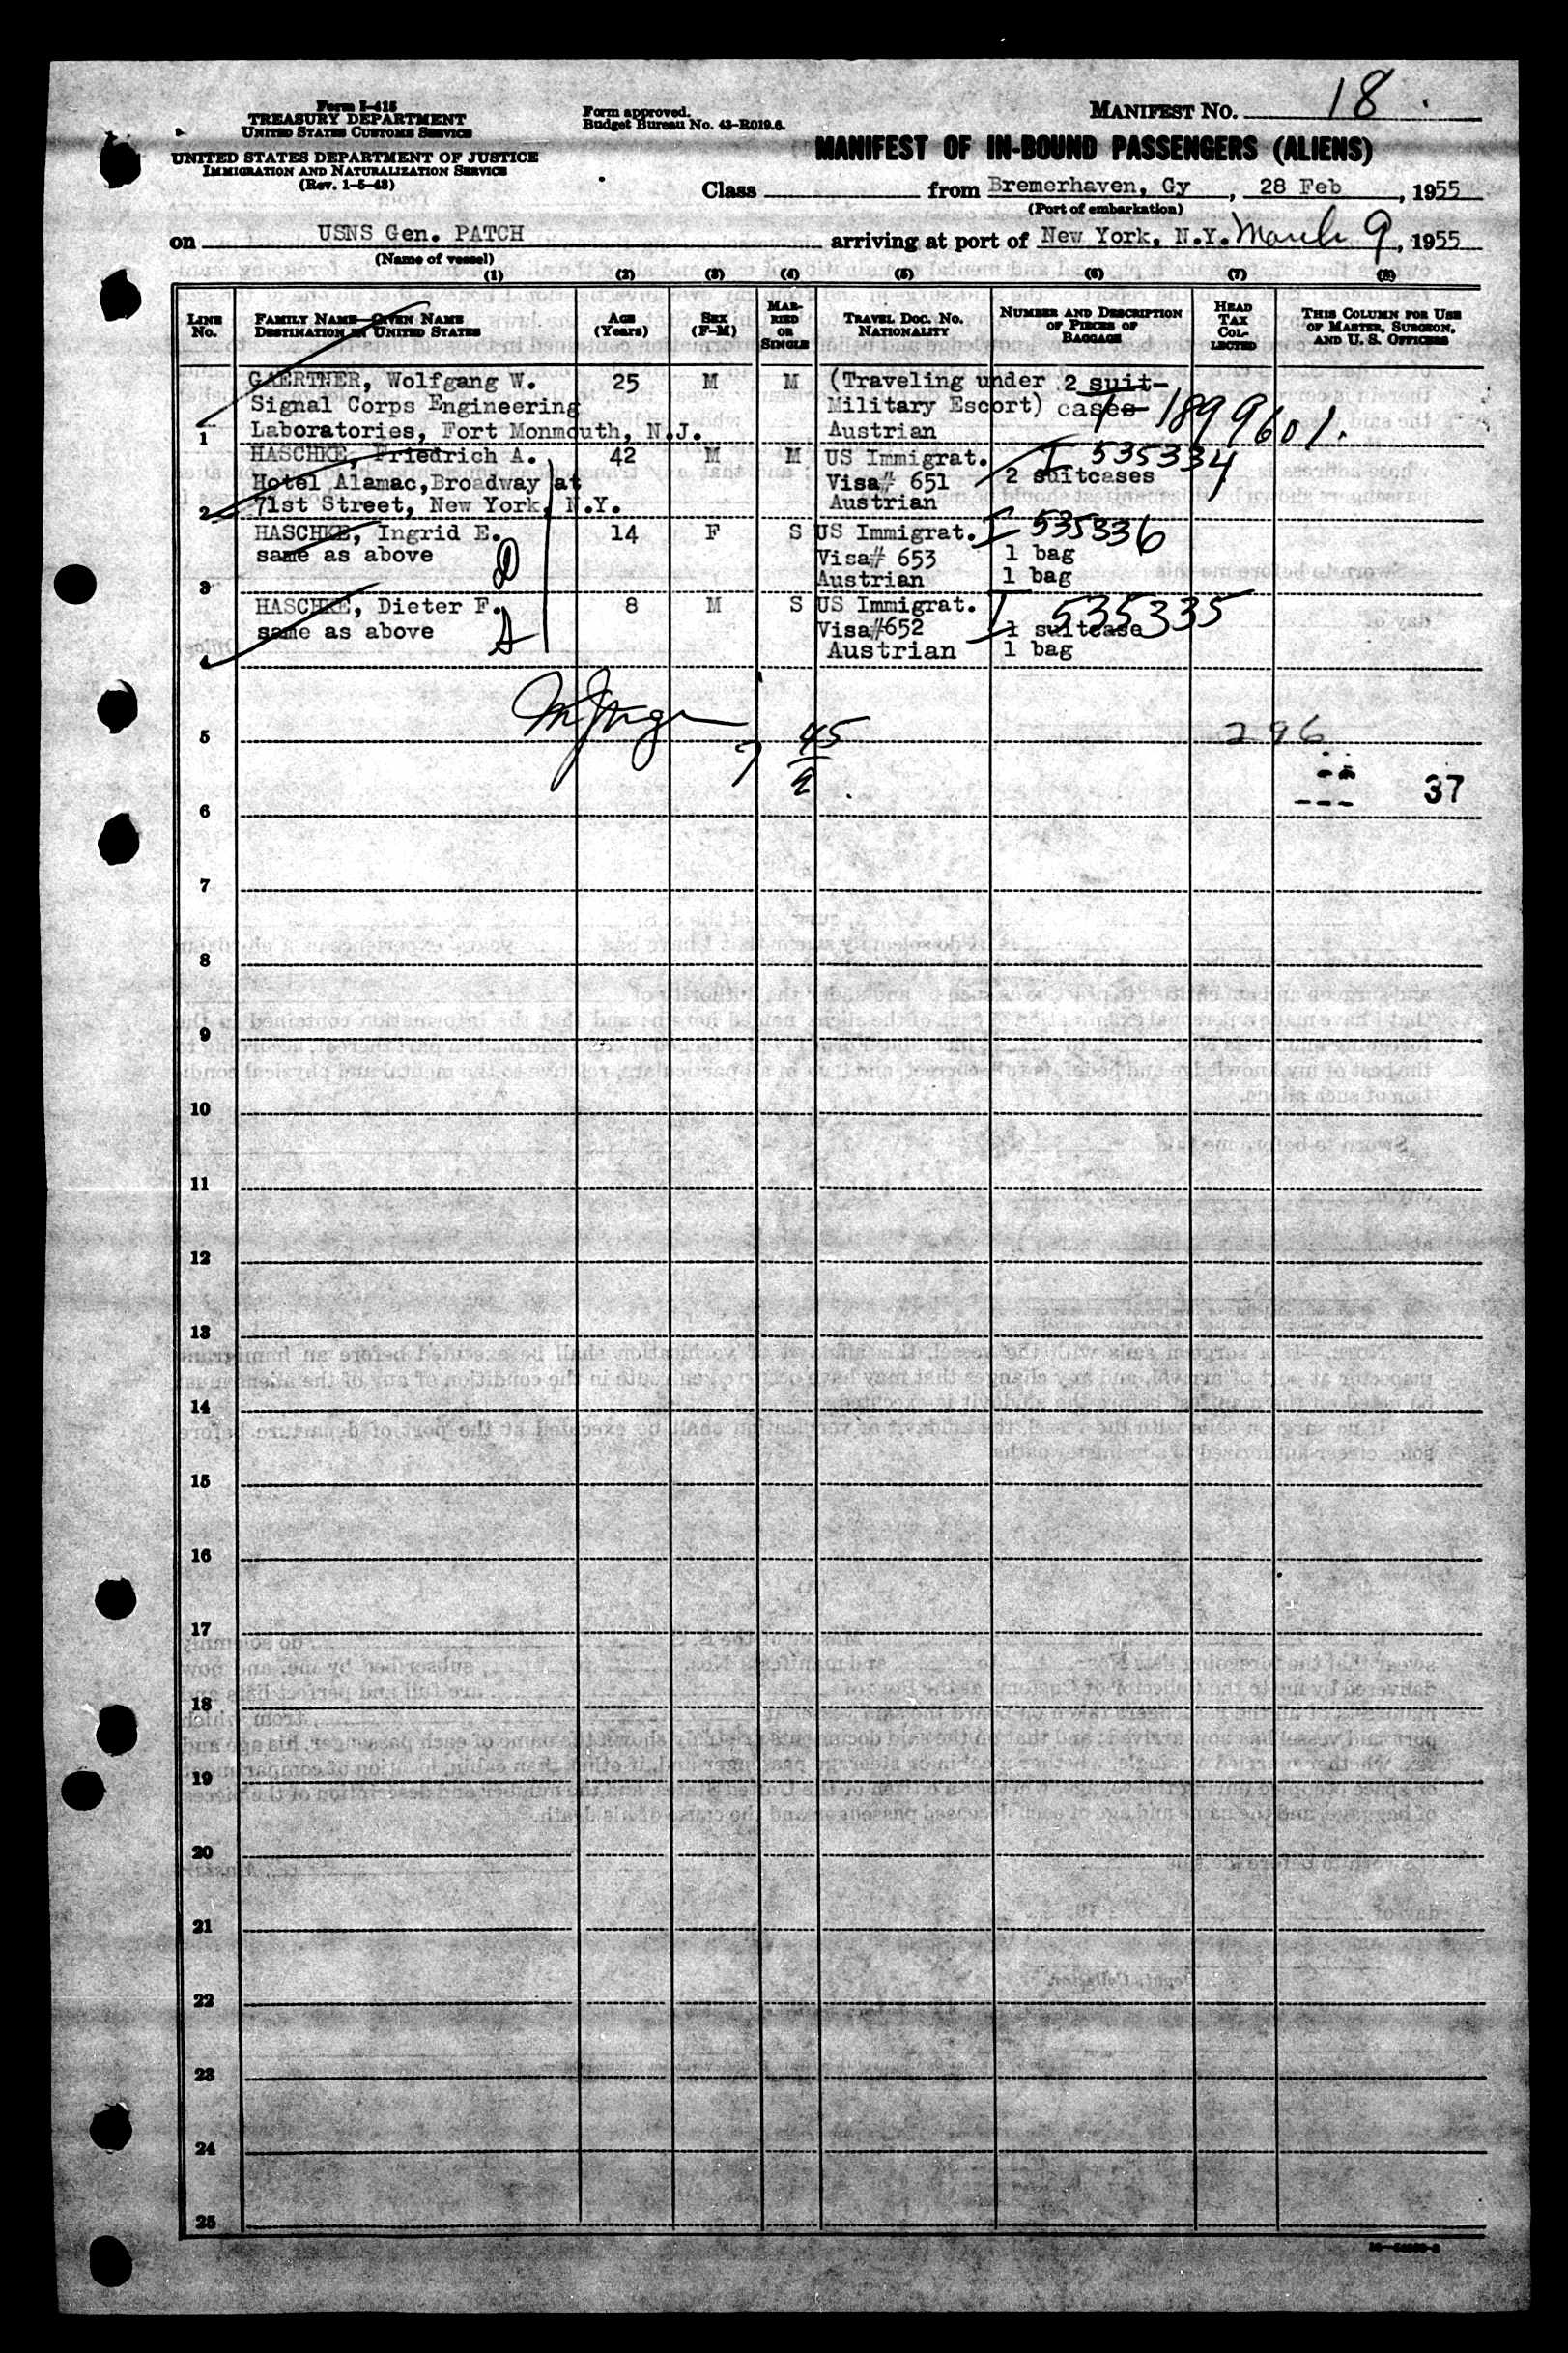 Form I-415
TREASURY DEPARTMENT
UNITED STATES CUSTOMS SERVICE
UNITED STATES DEPARTMENT OF JUSTICE
IMMIGRATION AND NATURALIZATION SERVICE
(Rev. 1-5-48)
Form approved.
Budget Bureau No. 43-R019.6.
MANIFEST NO. 18
MANIFEST OF IN-BOUND PASSENGERS (ALIENS)
Class from Bremerhaven, Gy, 28 Feb, 1955
(Port of embarkation)
on USNS Gen. PATCH arriving at port of New York, N.Y. March 9, 1955
(Name of vessel)
(1) (2) (3) (4) (5) (6) (7) (8)
LINE No.
FAMILY NAME—GIVEN NAME
DESTINATION IN UNITED STATES
AGE (Years)
SEX (F-M)
MARRIED OR SINGLE
TRAVEL DOC. NO.
NATIONALITY
NUMBER AND DESCRIPTION OF PIECES OF BAGGAGE
HEAD TAX COLLECTED
THIS COLUMN FOR USE OF MASTER, SURGEON, AND U. S. OFFICERS
GAERTNER, Wolfgang W. 25 M M (Traveling under 2 suit-
Signal Corps Engineering Military Escort) cases 1899601.
1 Laboratories, Fort Monmouth, N.J. Austrian
HASCHKE, Friedrich A. 42 M M US Immigrat. I 535334
Hotel Alamac,Broadway at Visa# 651 2 suitcases
2 71st Street, New York, N.Y. Austrian
HASCHKE, Ingrid E. 14 F S US Immigrat. I 535336
same as above Visa# 653 1 bag
3 Austrian 1 bag
HASCHKE, Dieter F. 8 M S US Immigrat. I 535335
same as above Visa#652 1 suitcase
4 Austrian 1 bag
45
5 296
2
37
6
7
8
9
10
11
12
13
14
15
16
17
18
19
20
21
22
23
24
25